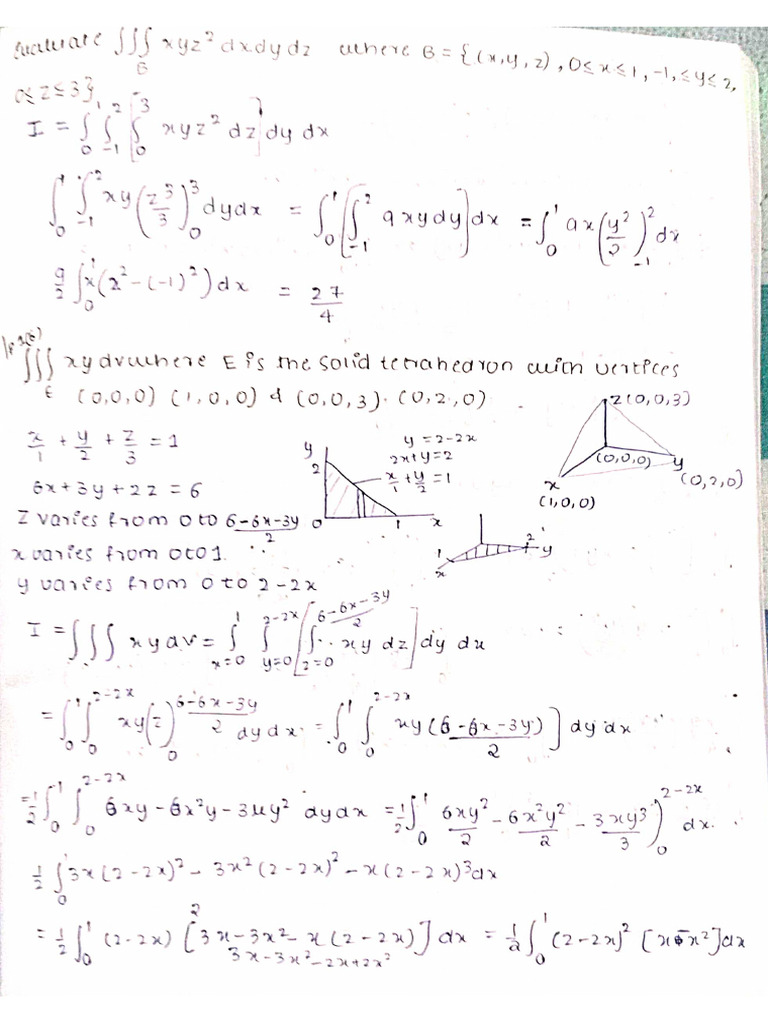 Evaluate ∭_B xyz² dxdydz where B = {(x,y,z), 0≤x≤1, -1,≤y≤2,
0≤z≤3}
I = ∫₀¹ ∫₋₁² [∫₀³ xyz² dz] dy dx
∫₀¹ ∫₋₁² xy (z³/3)₀³ dydx = ∫₀¹ [∫₋₁² 9xydy] dx = ∫₀¹ 9x (y²/2)₋₁² dx
9/2 ∫₀¹ x(2² - (-1)²) dx = 27/4
∭_E xy dv where E is the solid tetrahedron with vertices
(0,0,0) (1,0,0) & (0,0,3). (0,2,0)
z(0,0,3)
(0,0,0)
y
(0,2,0)
x
(1,0,0)
x/1 + y/2 + z/3 = 1
6x+3y+2z = 6
y
2
0
1
x
y = 2-2x
2x+y=2
x/1 + y/2 = 1
1
x
2
y
z varies from 0 to (6-6x-3y)/2
x varies from 0 to 1.
y varies from 0 to 2-2x
I = ∭ xydv = ∫_{x=0}^{1} ∫_{y=0}^{2-2x} [∫_{z=0}^{(6-6x-3y)/2} xy dz] dy dx
= ∫₀¹ ∫₀^{2-2x} xy(z)₀^{(6-6x-3y)/2} dydx = ∫₀¹ ∫₀^{2-2x} xy (6-6x-3y)/2 ] dy dx
= 1/2 ∫₀¹ ∫₀^{2-2x} 6xy - 6x²y - 3xy² dydx = 1/2 ∫₀¹ 6xy²/2 - 6x²y²/2 - 3xy³/3 )₀^{2-2x} dx.
1/2 ∫₀¹ 3x(2-2x)² - 3x²(2-2x)² - x(2-2x)³dx
= 1/2 ∫₀¹ (2-2x)² [3x-3x²- x(2-2x)] dx = 1/2 ∫₀¹ (2-2x)² [x-x²]dx
3x-3x²-2x+2x²